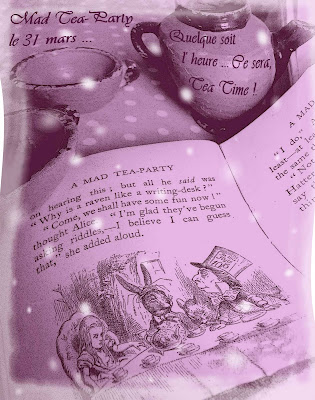 Mad Tea-Party
le 31 mars ...
Quelque soit
l' heure ... Ce sera,
Tea Time !
A MAD TEA-PARTY
on hearing this; but all he said was
"Why is a raven like a writing-desk?"
"Come, we shall have some fun now!"
thought Alice. "I'm glad they've begun
asking riddles,—I believe I can guess
that," she added aloud.
A MAD
"I do," A
least—at lea
the same th
"Not
Hatter
say th
thin